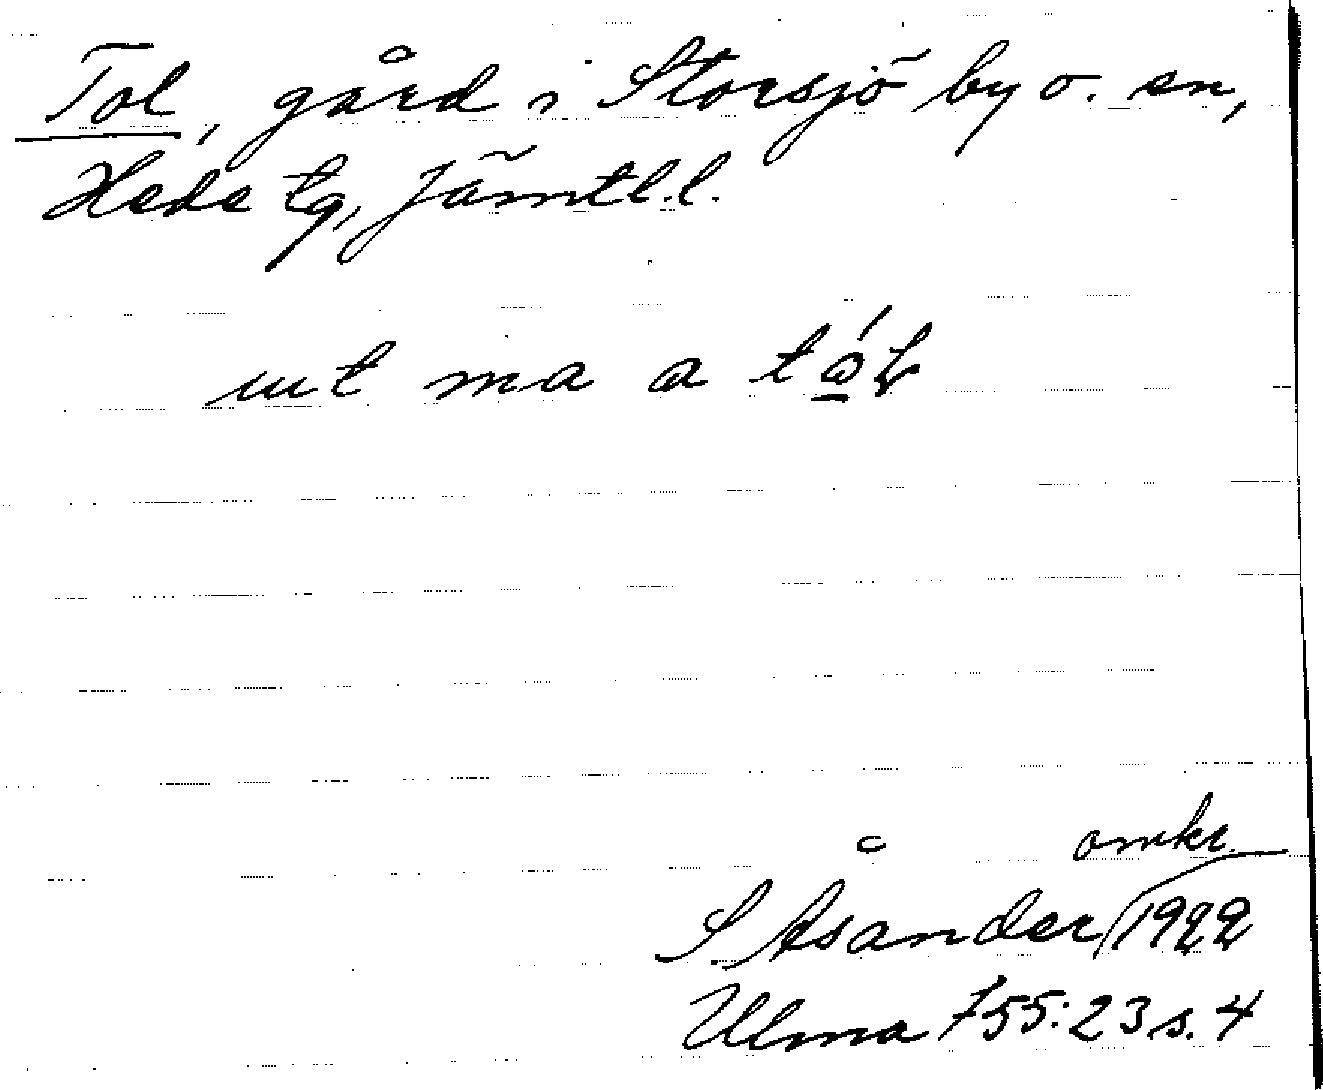 Tol, gård i Storsjö by o. sn,
Hede tg, Jämtl.l.
ut ma a
omkr.
S. Åsander 1922
Ulma 755:23 s. 4